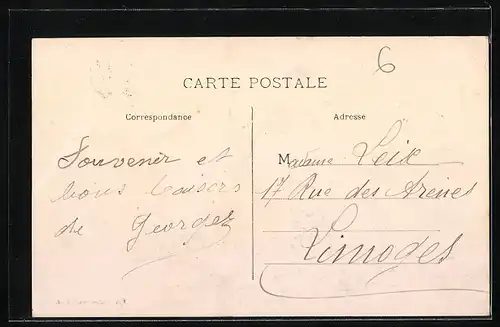 6
CARTE POSTALE
Correspondance
Adresse
Souvenir et
bons baisers
de Georges
Madame
17 Rue des Arènes
Limoges